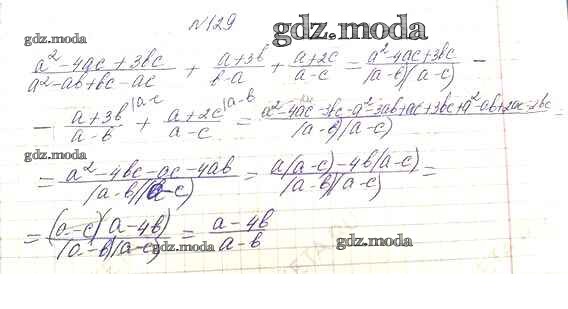 N129
gdz.moda gdz.moda
(a² - 4ac + 3bc)/(a² - ab + bc - ac) + (a+3b)/(b-a) + (a+2c)/(a-c) = (a² - 4ac + 3bc)/((a-b)(a-c)) -
gdz.moda
- (a+3b)/(a-b) |a-c + (a+2c)/(a-c) |a-b = (a² - 4ac + 3bc - a² - 3ab + ac + 3bc + a² - ab + 2ac - 2bc)/((a-b)(a-c)) =
gdz.moda
= (a² - 4bc - ac - 4ab)/((a-b)(a-c)) = (a(a-c) - 4b(a-c))/((a-b)(a-c)) =
= ((a-c)(a-4b))/((a-b)(a-c)) = (a-4b)/(a-b)
gdz.moda gdz.moda